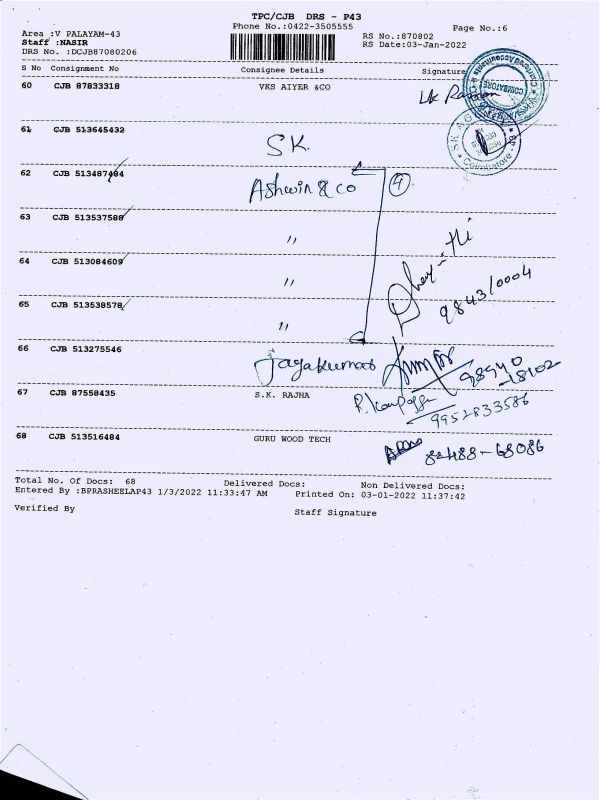 TPC/CJB DRS - P43
Phone No.:0422-3505555
Page No.:6
Area :V PALAYAM-43
Staff :NASIR
DRS No. :DCJB87080206
RS No.:870802
RS Date:03-Jan-2022
S No Consignment No Consignee Details Signature
60 CJB 87833318 VKS AIYER &CO
COIMBATORE
61 CJB 513645432 SK.
Coimbatore
62 CJB 513487484 Ashwin & co 4
63 CJB 513537588 "
64 CJB 513084609 "
984310004
65 CJB 513538578 "
66 CJB 513275546 Jayakumar
98940
18102
67 CJB 87558435 S.K. RAJHA
9952833586
68 CJB 513516484 GURU WOOD TECH
82488-68086
Total No. Of Docs: 68 Delivered Docs: Non Delivered Docs:
Entered By :BPRASHEELAP43 1/3/2022 11:33:47 AM Printed On: 03-01-2022 11:37:42
Verified By Staff Signature